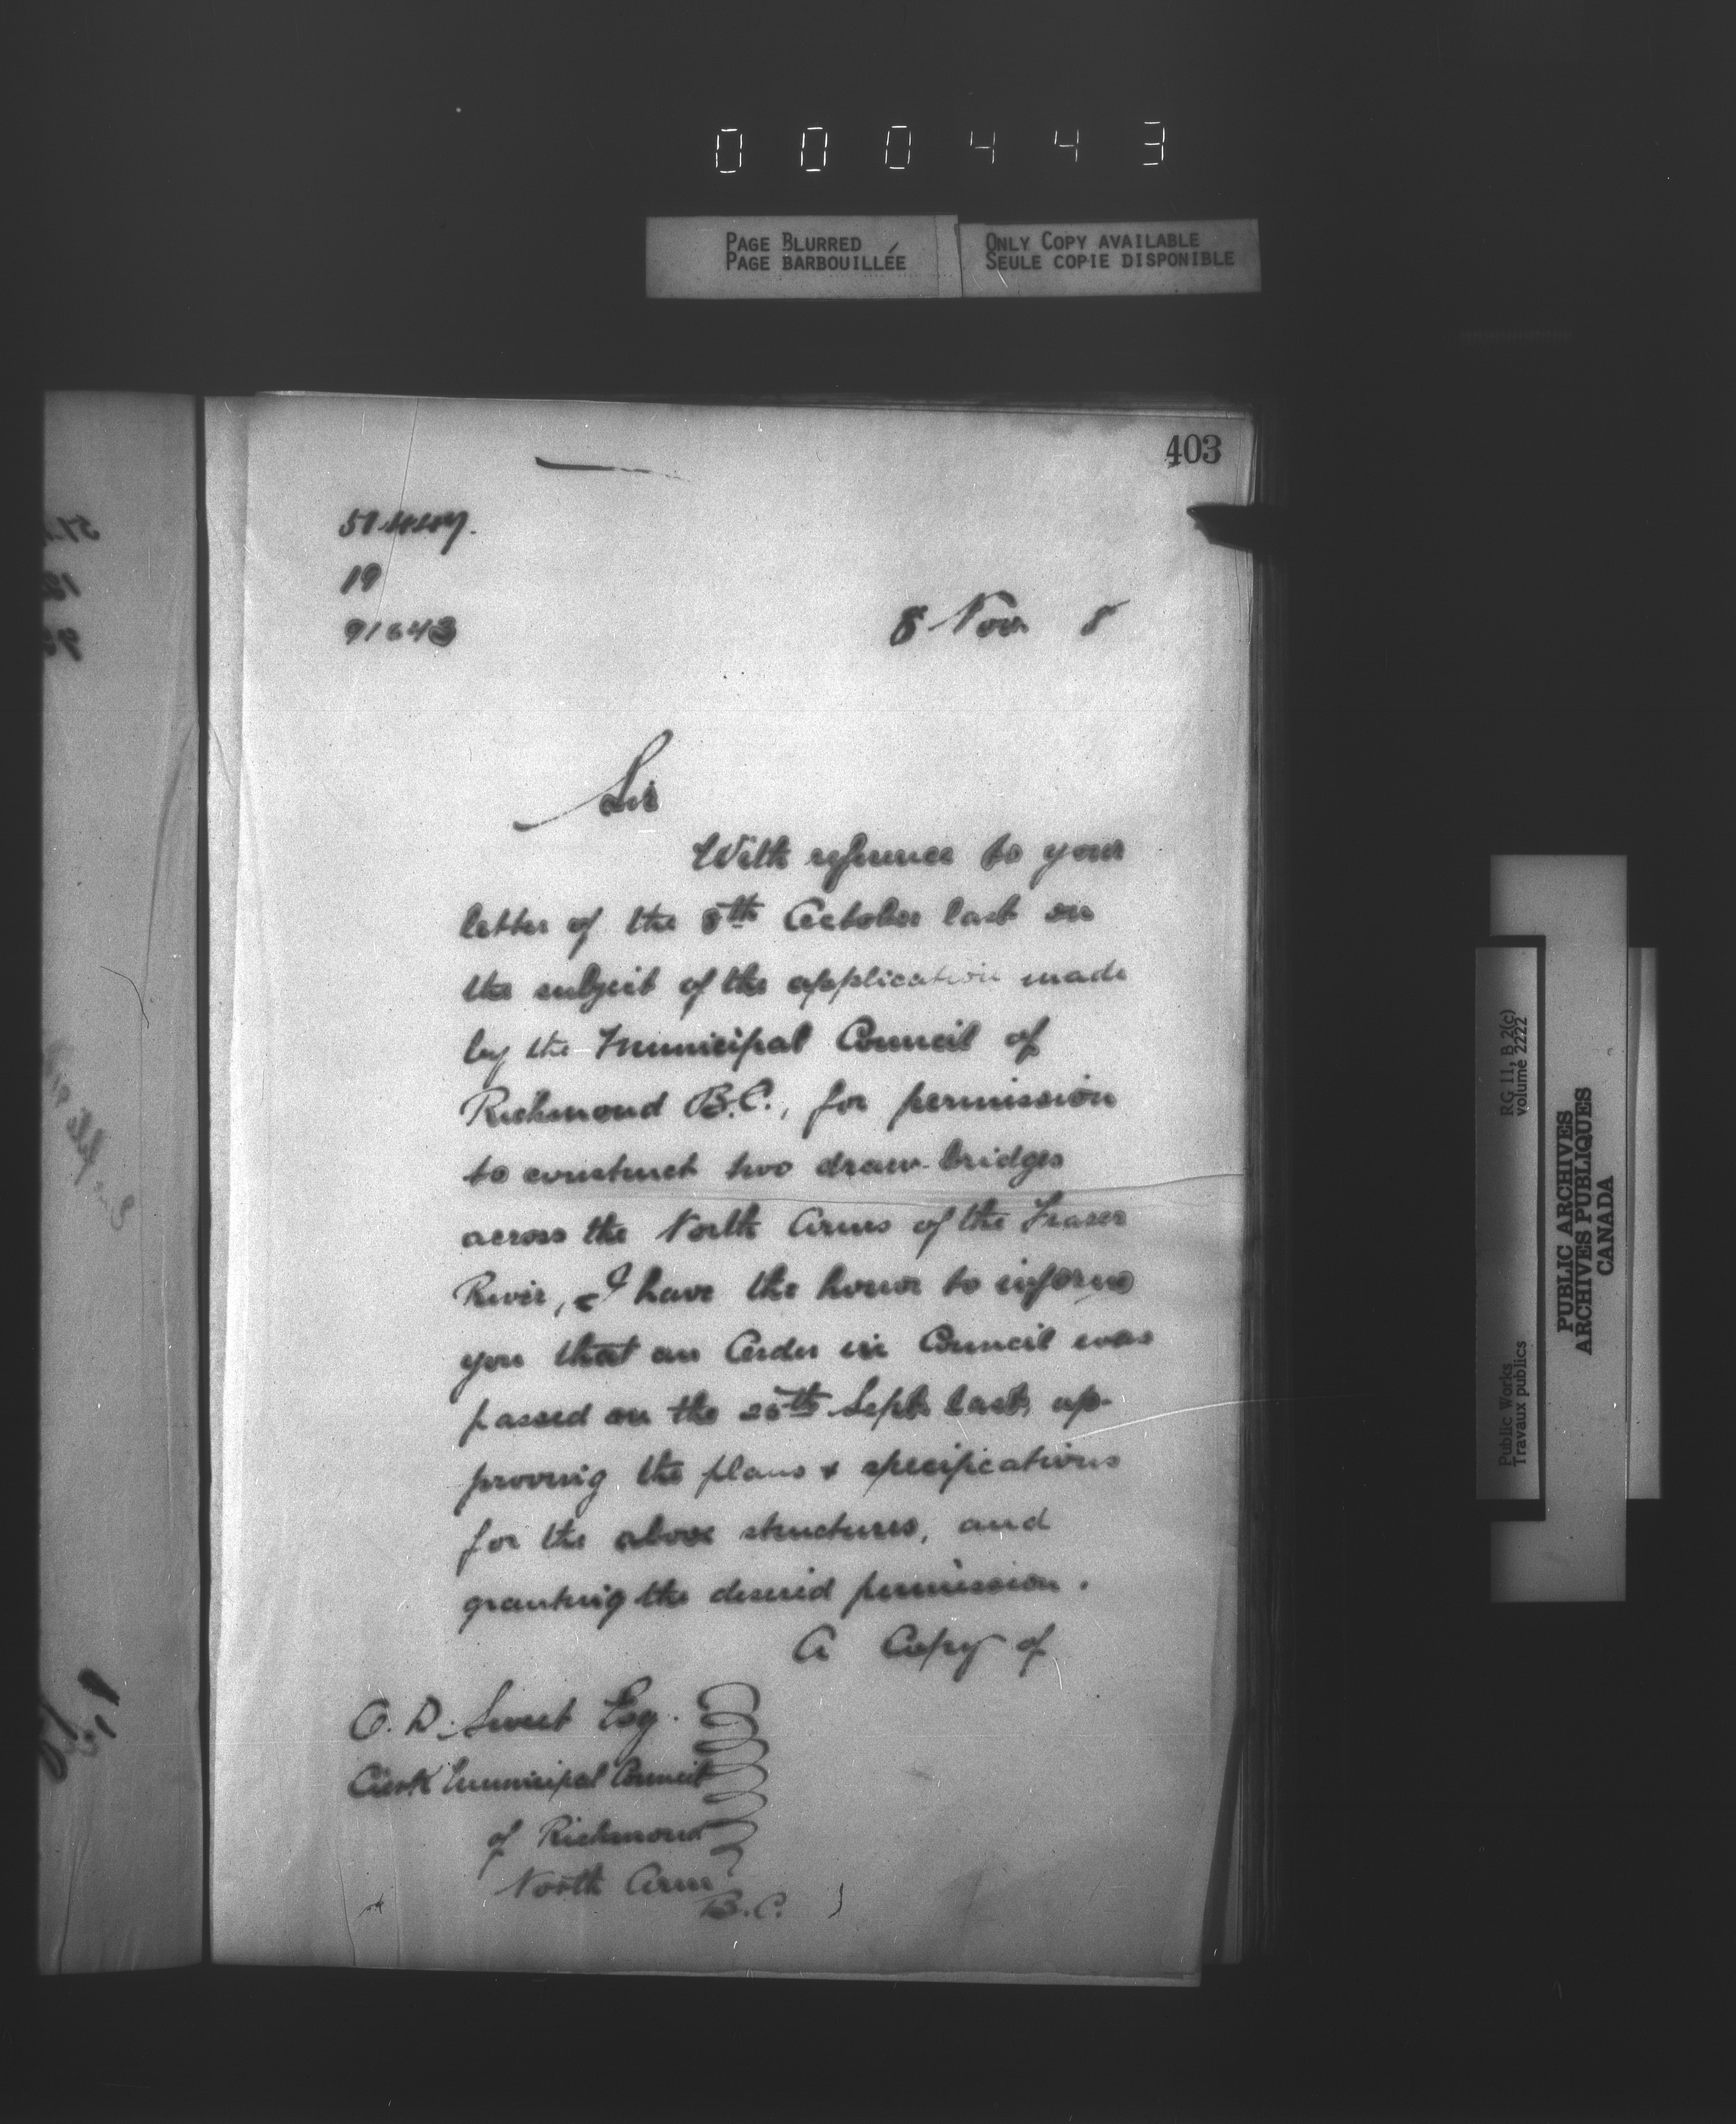 000443
PAGE BLURRED
PAGE BARBOUILLÉE
ONLY COPY AVAILABLE
SEULE COPIE DISPONIBLE
403
19
91643
8 Nov 8
Sir
With reference to your
letter of the 8th October last on
the subject of the application made
by the Municipal Council of
Richmond B.C., for permission
to construct two draw-bridges
across the North Arms of the Fraser
River, I have the honor to inform
you that an Order in Council was
passed on the 25th Sept. last, ap-
proving the plans & specifications
for the above structures, and
granting the desired permission.
A Copy of
O. D. Sweet Esq.
Clerk Municipal Council
of Richmond
North Arm
B.C.
RG 11, B 2(c)
volume 2222
Public Works
Travaux publics
PUBLIC ARCHIVES
ARCHIVES PUBLIQUES
CANADA